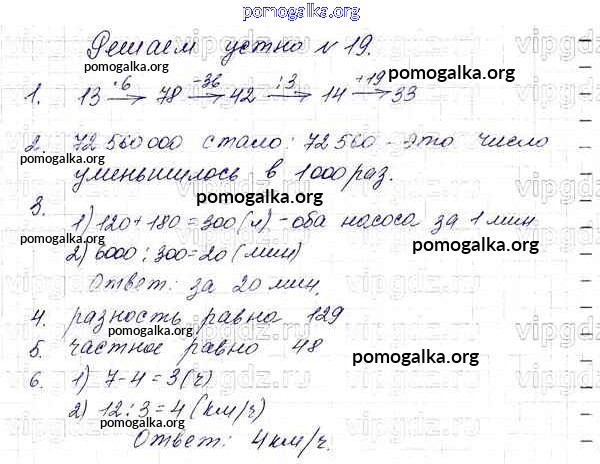 pomogalka.org
Решаем устно №19.
1. 13 ·6→ 78 -36→ 42 :3→ 14 +19→ 33
pomogalka.org pomogalka.org
2. 72 560 000 стало: 72 560 - это число
pomogalka.org
уменьшилось в 1000 раз.
pomogalka.org
3.
1) 120 + 180 = 300 (л) - оба насоса за 1 мин
pomogalka.org pomogalka.org
2) 6000 : 300 = 20 (мин)
Ответ: за 20 мин.
pomogalka.org
4. разность равна 129
pomogalka.org
5. частное равно 48
pomogalka.org
6. 1) 7-4=3 (ч)
pomogalka.org
2) 12:3=4 (км/ч)
Ответ: 4 км/ч.
vipgdz.ru